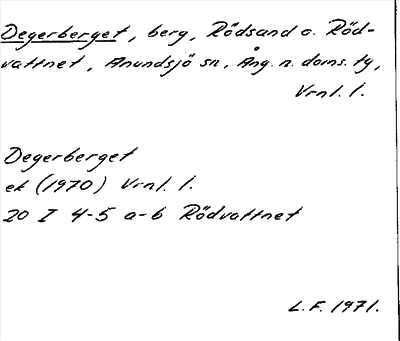 Degerberget, berg, Rödsand o. Röd-
vattnet, Anundsjö sn, Ång. n. doms. tg,
Vrnl. l.
Degerberget
ek (1970) Vrnl. l.
20 I 4-5 a-b Rödvattnet
L.F. 1971.